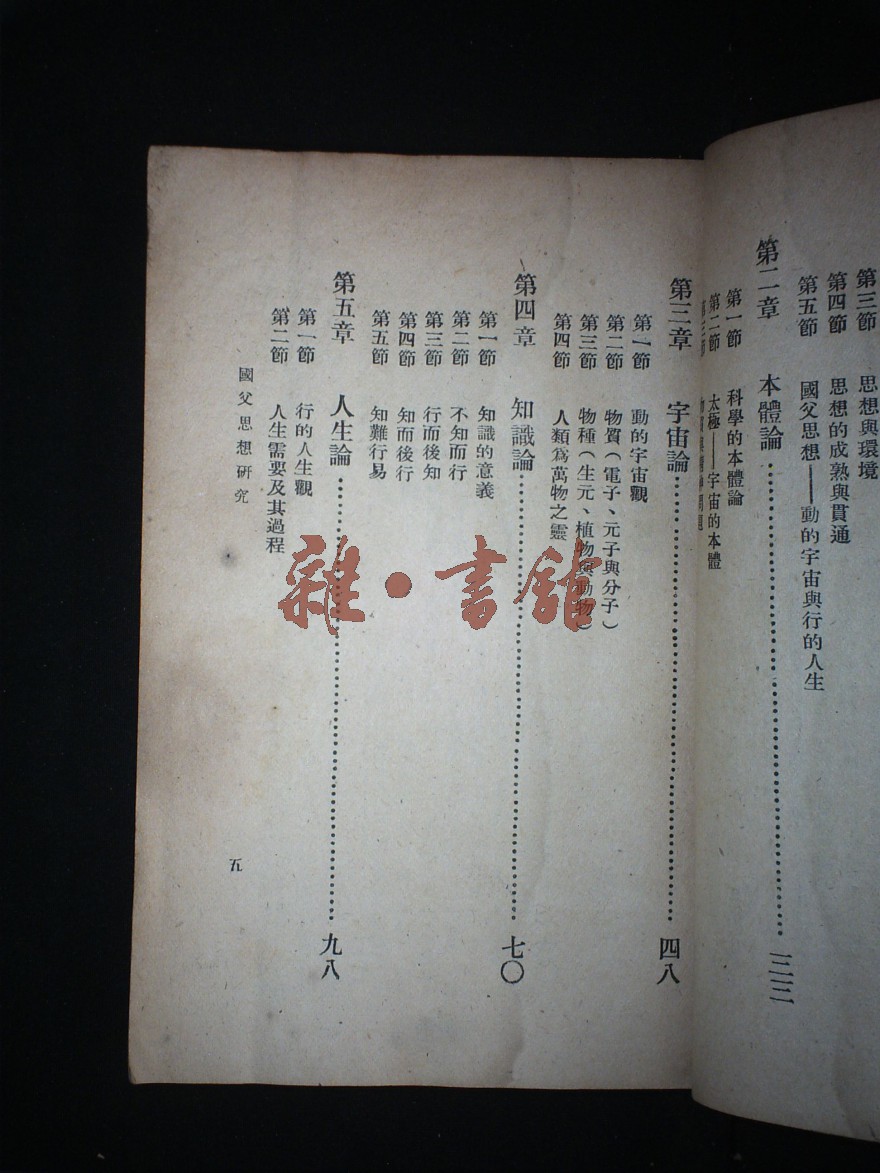 第三節 思想與環境
第四節 思想的成熟與貫通
第五節 國父思想——動的宇宙與行的人生
第二章 本體論……
第一節 科學的本體論
第二節 太極——宇宙的本體
第三章 宇宙論……四八
第一節 動的宇宙觀
第二節 物質(電子、元子與分子)
第三節 物種(生元、植物與動物)
第四節 人類爲萬物之靈
第四章 知識論……七〇
第一節 知識的意義
第二節 不知而行
第三節 行而後知
第四節 知而後行
第五節 知難行易
第五章 人生論……九八
第一節 行的人生觀
第二節 人生需要及其過程
國父思想研究
五
雜·書館